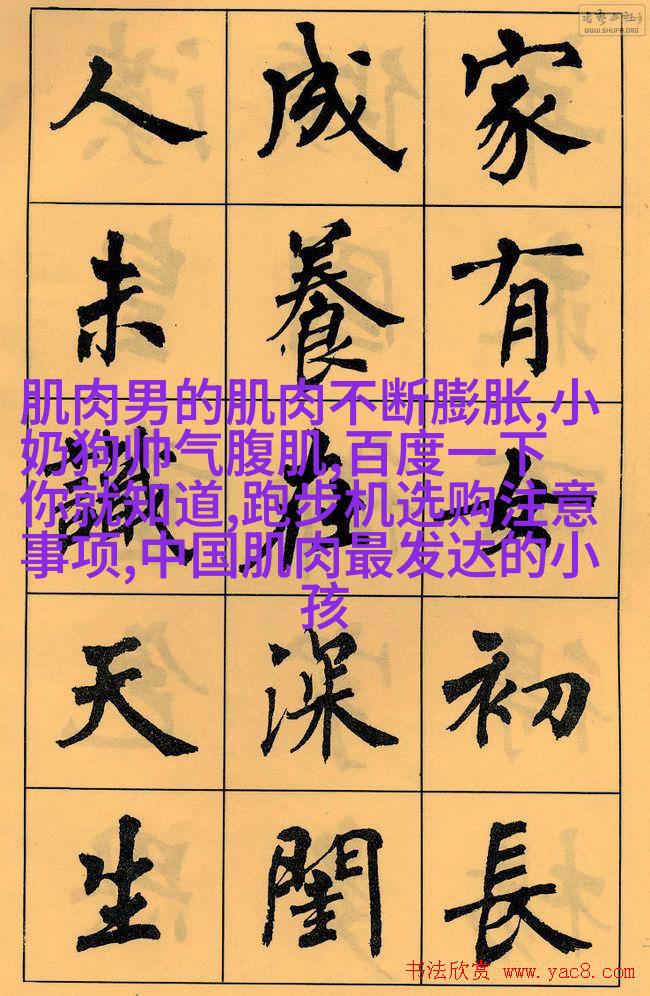 家有女初長
成養在深閨
人未識天生
肌肉男的肌肉不断膨胀,小
奶狗帅气腹肌,百度一下
你就知道,跑步机选购注意
事项,中国肌肉最发达的小
孩
WWW.SHUFA.ORG
书法欣赏 www.yac8.com